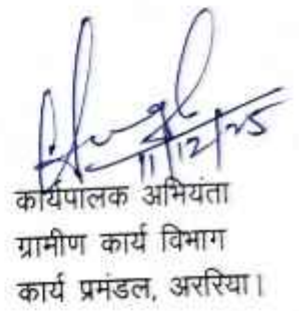 11/12/25
कार्यपालक अभियंता
ग्रामीण कार्य विभाग
कार्य प्रमंडल, अररिया।